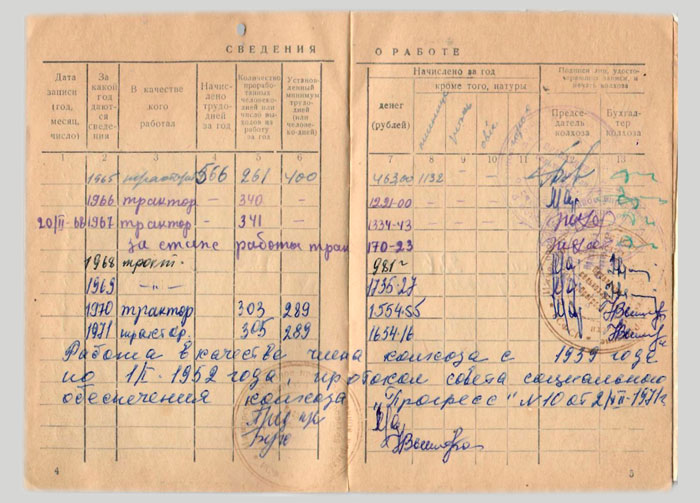 СВЕДЕНИЯ О РАБОТЕ
Дата записи (год, месяц, число) За какой год даются сведения В качестве кого работал Начислено трудодней за год Количество проработанных человекодней или число выходов на работу за год Установленный минимум трудодней (или человеко-дней) Начислено за год Подписи лиц, удостоверяющих записи, и печать колхоза
денег (рублей) кроме того, натуры Председатель колхоза Бухгалтер колхоза
1 2 3 4 5 6 7 8 9 10 11 12 13
1965 566 261 400 463.00 1132
1966 трактор - 340 - 1221-00
20/II-68 1967 трактор - 341 1334-43
за стаж работы трак 170-23
1968 981
1969 -"- 1735-27
1970 трактор 303 289 1554-55
1971 трактор. 305 289 1654-16
Работа в качестве члена колхоза с 1939 года
по 1/I-1952 года, протокол совета социального
обеспечения колхоза "Прогресс" №10 от 1971г.
4 5